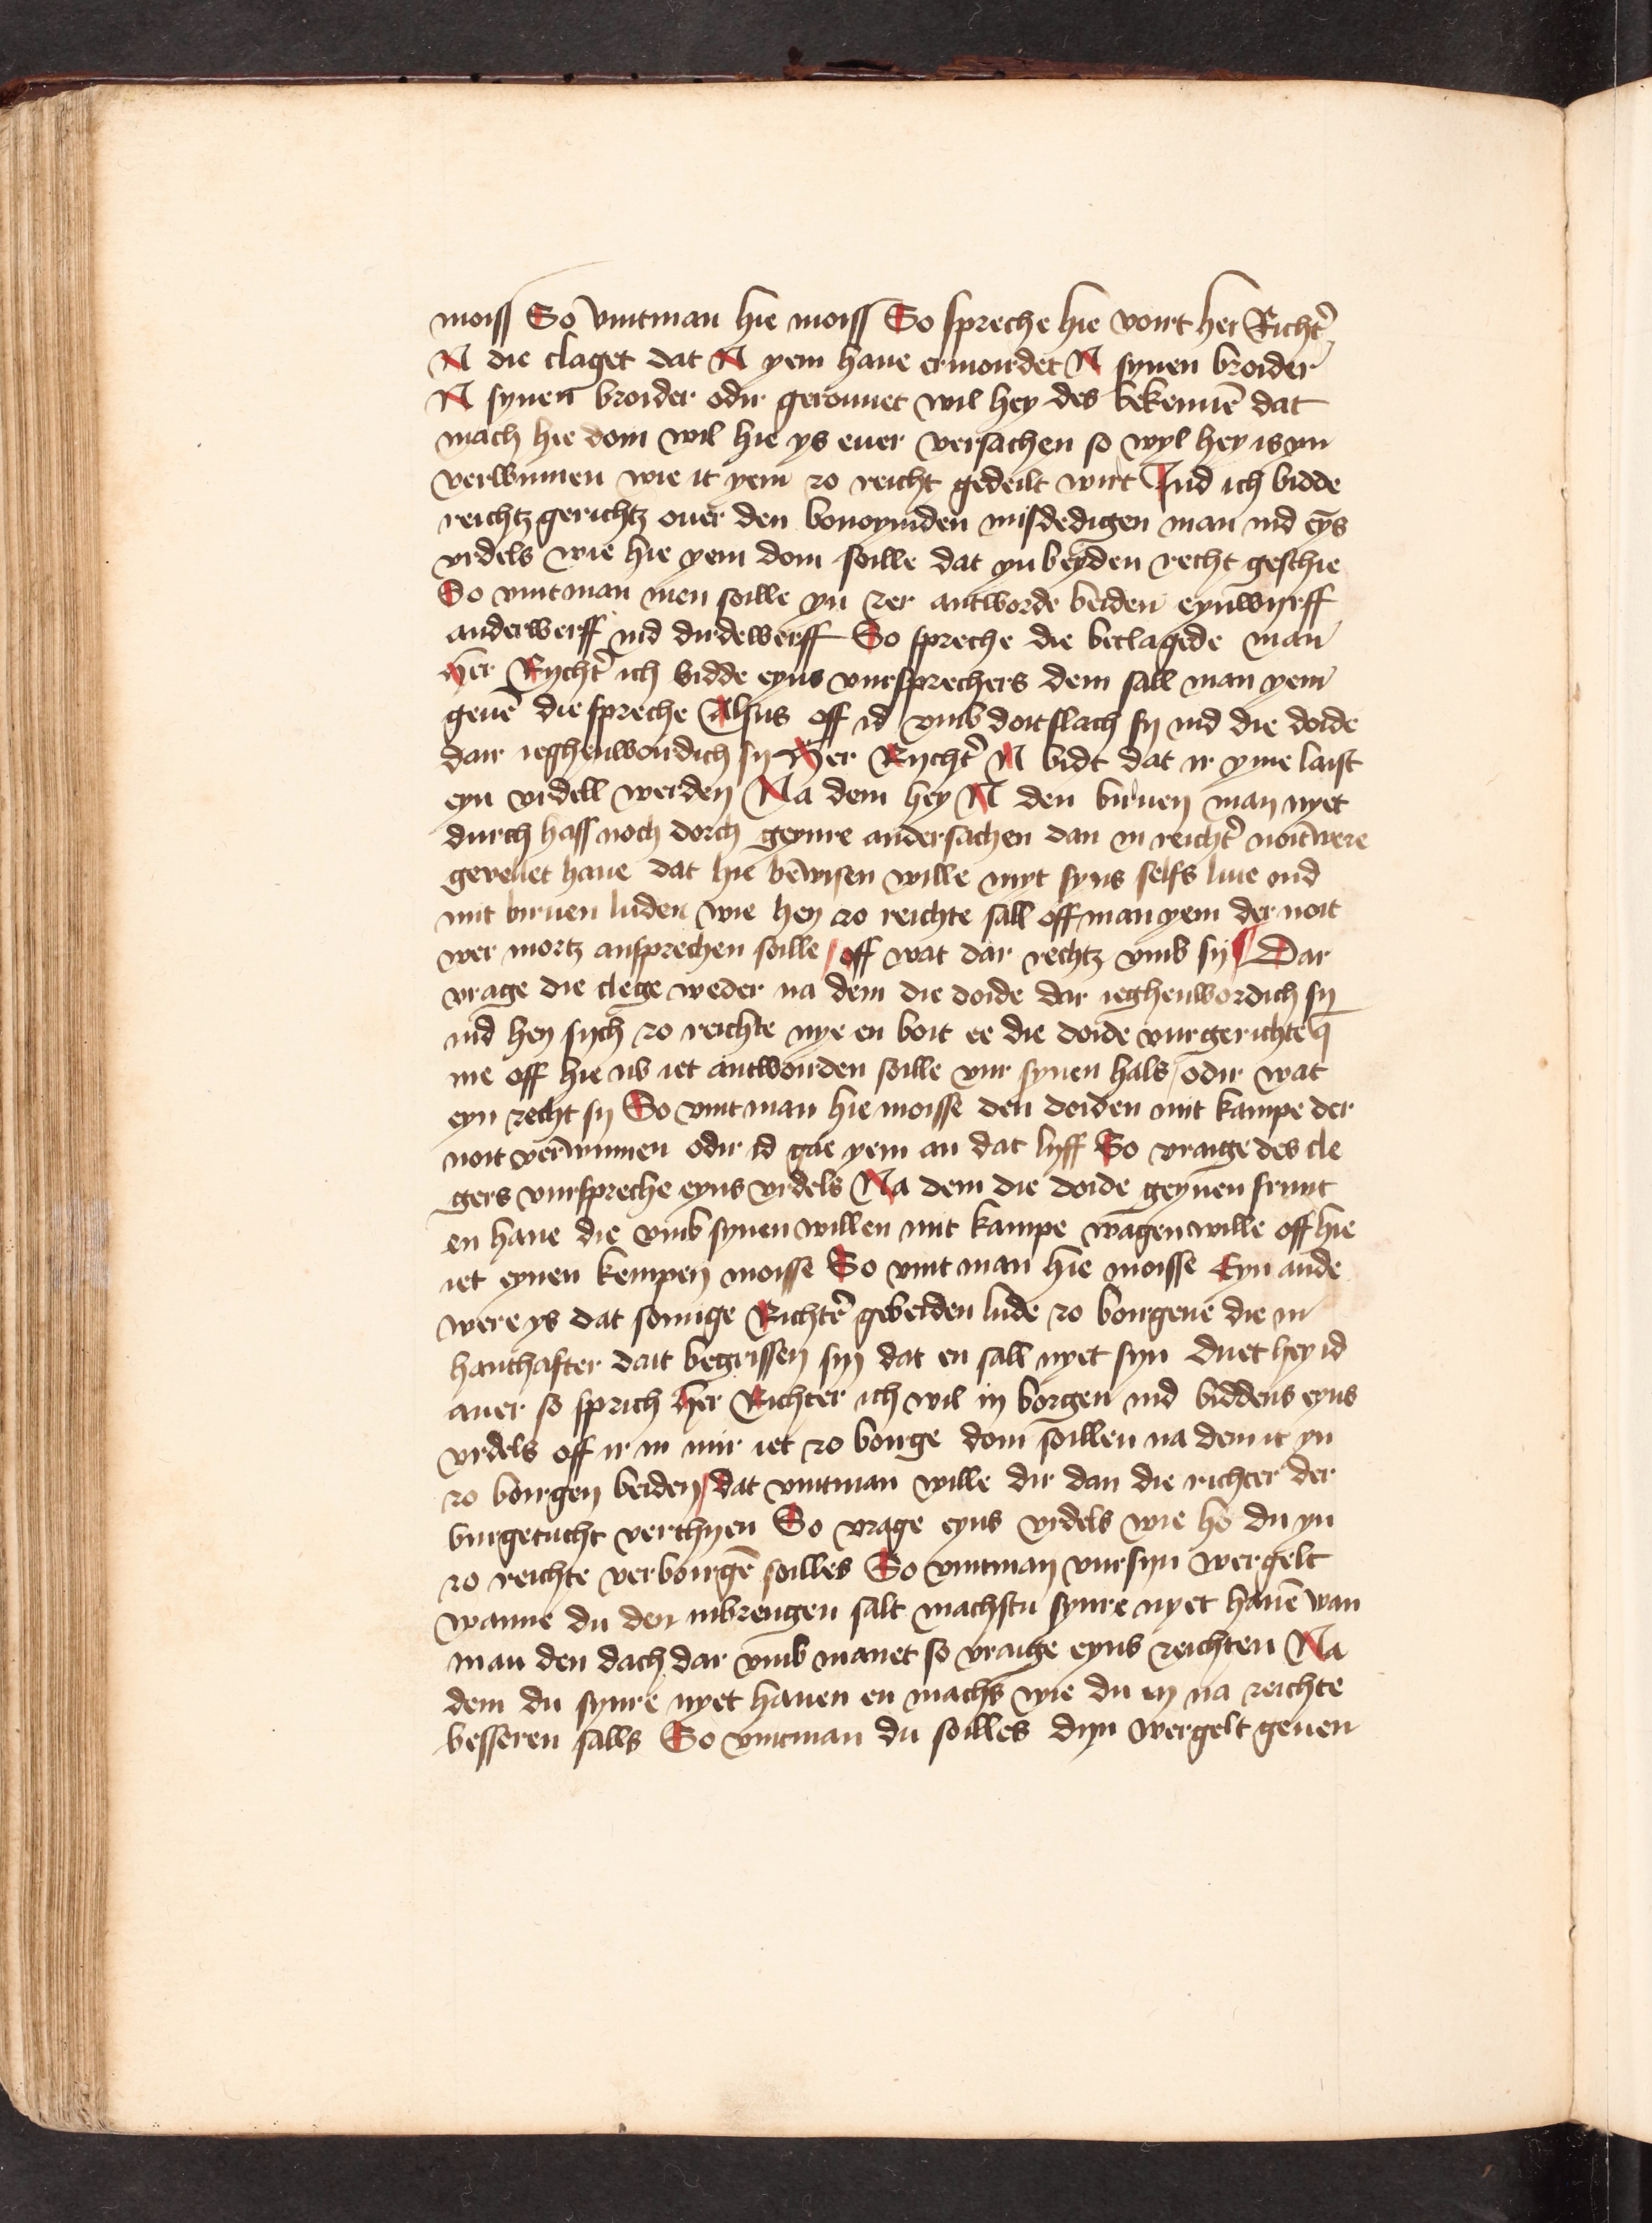 moiss So vintman hie moiss So spreche hie voirt her Richt̉
N die claget dat N yem haue ermoirdet N synen broider
N synen broider odir gerouuet wil hey des bekennē dat
mach hie doin wil hie ys euer versachen so wyl hey is yn
verwinnen wie it yem zo reicht gedeilt wirt Ind ich bidde
reichtz gerichtz ouer den misdedigen man ind eȳs
virdels wie hie yem doin soille dat yn beyden recht geschie
So vintman men soille yn zer antworde beiden eynwyrff
anderwerff ind dirdewerff So spreche die beclagede man
her Rycht̉ ich bidde eyns vursprechers dem sall man yem
geuē die spreche Alsus off id vmb doitslach sy ind die doide
dair ieghenwoirdich sy Her Rycht̉ N bidt dat ir yme laist
eyn virdell werden Na dem hey N den biruen man nyet
durch hass noch dorch geynre andersachen dan in reicht̉ noitwere
geveliet haue dat hie bewisen wille myt syns selfs liue ind
mit biruen luden wie hey zo reichte sall off man yem der noit
wer mortz ansprechen soille / off wat dar rechtz vmb sy Dar
vrage die clege weder na dem die doide dar ieghenwordich sy
ind hey sych zo reichte nye en boit ee die doide vur gerichte q̄
me off hie vs iet antwoirden soille vur synen hals / odir wat
eyn recht sy So vint man hie moisse den doiden mit kampe der
noit verwinnen odir id gae yem an dat lyff So vraige des cle
gers vurspreche eyns virdels Na dem die doide geynen frunt
en haue die vmb synen willen mit kampe wagen wille off hie
iet eynen kempen moisse So vint man hie moisse Eyn ande
were ys dat somige Richtē gebeiden lude zo borgene die in
hanthafter dait begriffen syn dat en sall nyet syn duet hey id
auer so sprich her Richter ich wil in borgen ind biddens eyns
virdels off ir in mir iet zo borge doin soillen na dem it yn
zo borgen beiden / dat vintman wille dir dan die richter der
burgetucht verthyen So vrage eyns virdels wie ho du yn
zo reichte verboirgē soilles So vintman vur syn wergelt
wanne du den inbrengen salt machstu synre nyet hauē wan
man den dach dar vmb manet so vraige eyns reichten Na
dem du synre nyet hauen en machs wie du ey na reichte
besseren salls So vintman du soilles dyn wergelt geuen